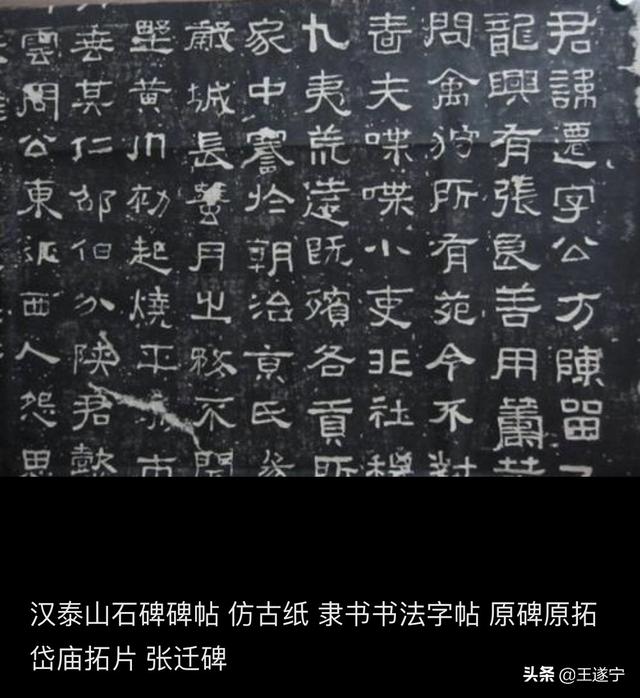 君諱遷字公方陳留
龍興有張良善用
問禽狩所有苑令不對
嗇夫喋喋小吏非社稷
九夷荒遠既殯各貢所
家中謇於朝治京氏
嚴城長蠶月之務不閉
壄黃巾初起燒平市
其仁邵伯分陝君懿
雲周公東征西人怨思
汉泰山石碑碑帖 仿古纸 隶书书法字帖 原碑原拓
岱庙拓片 张迁碑
头条 @王遂宁